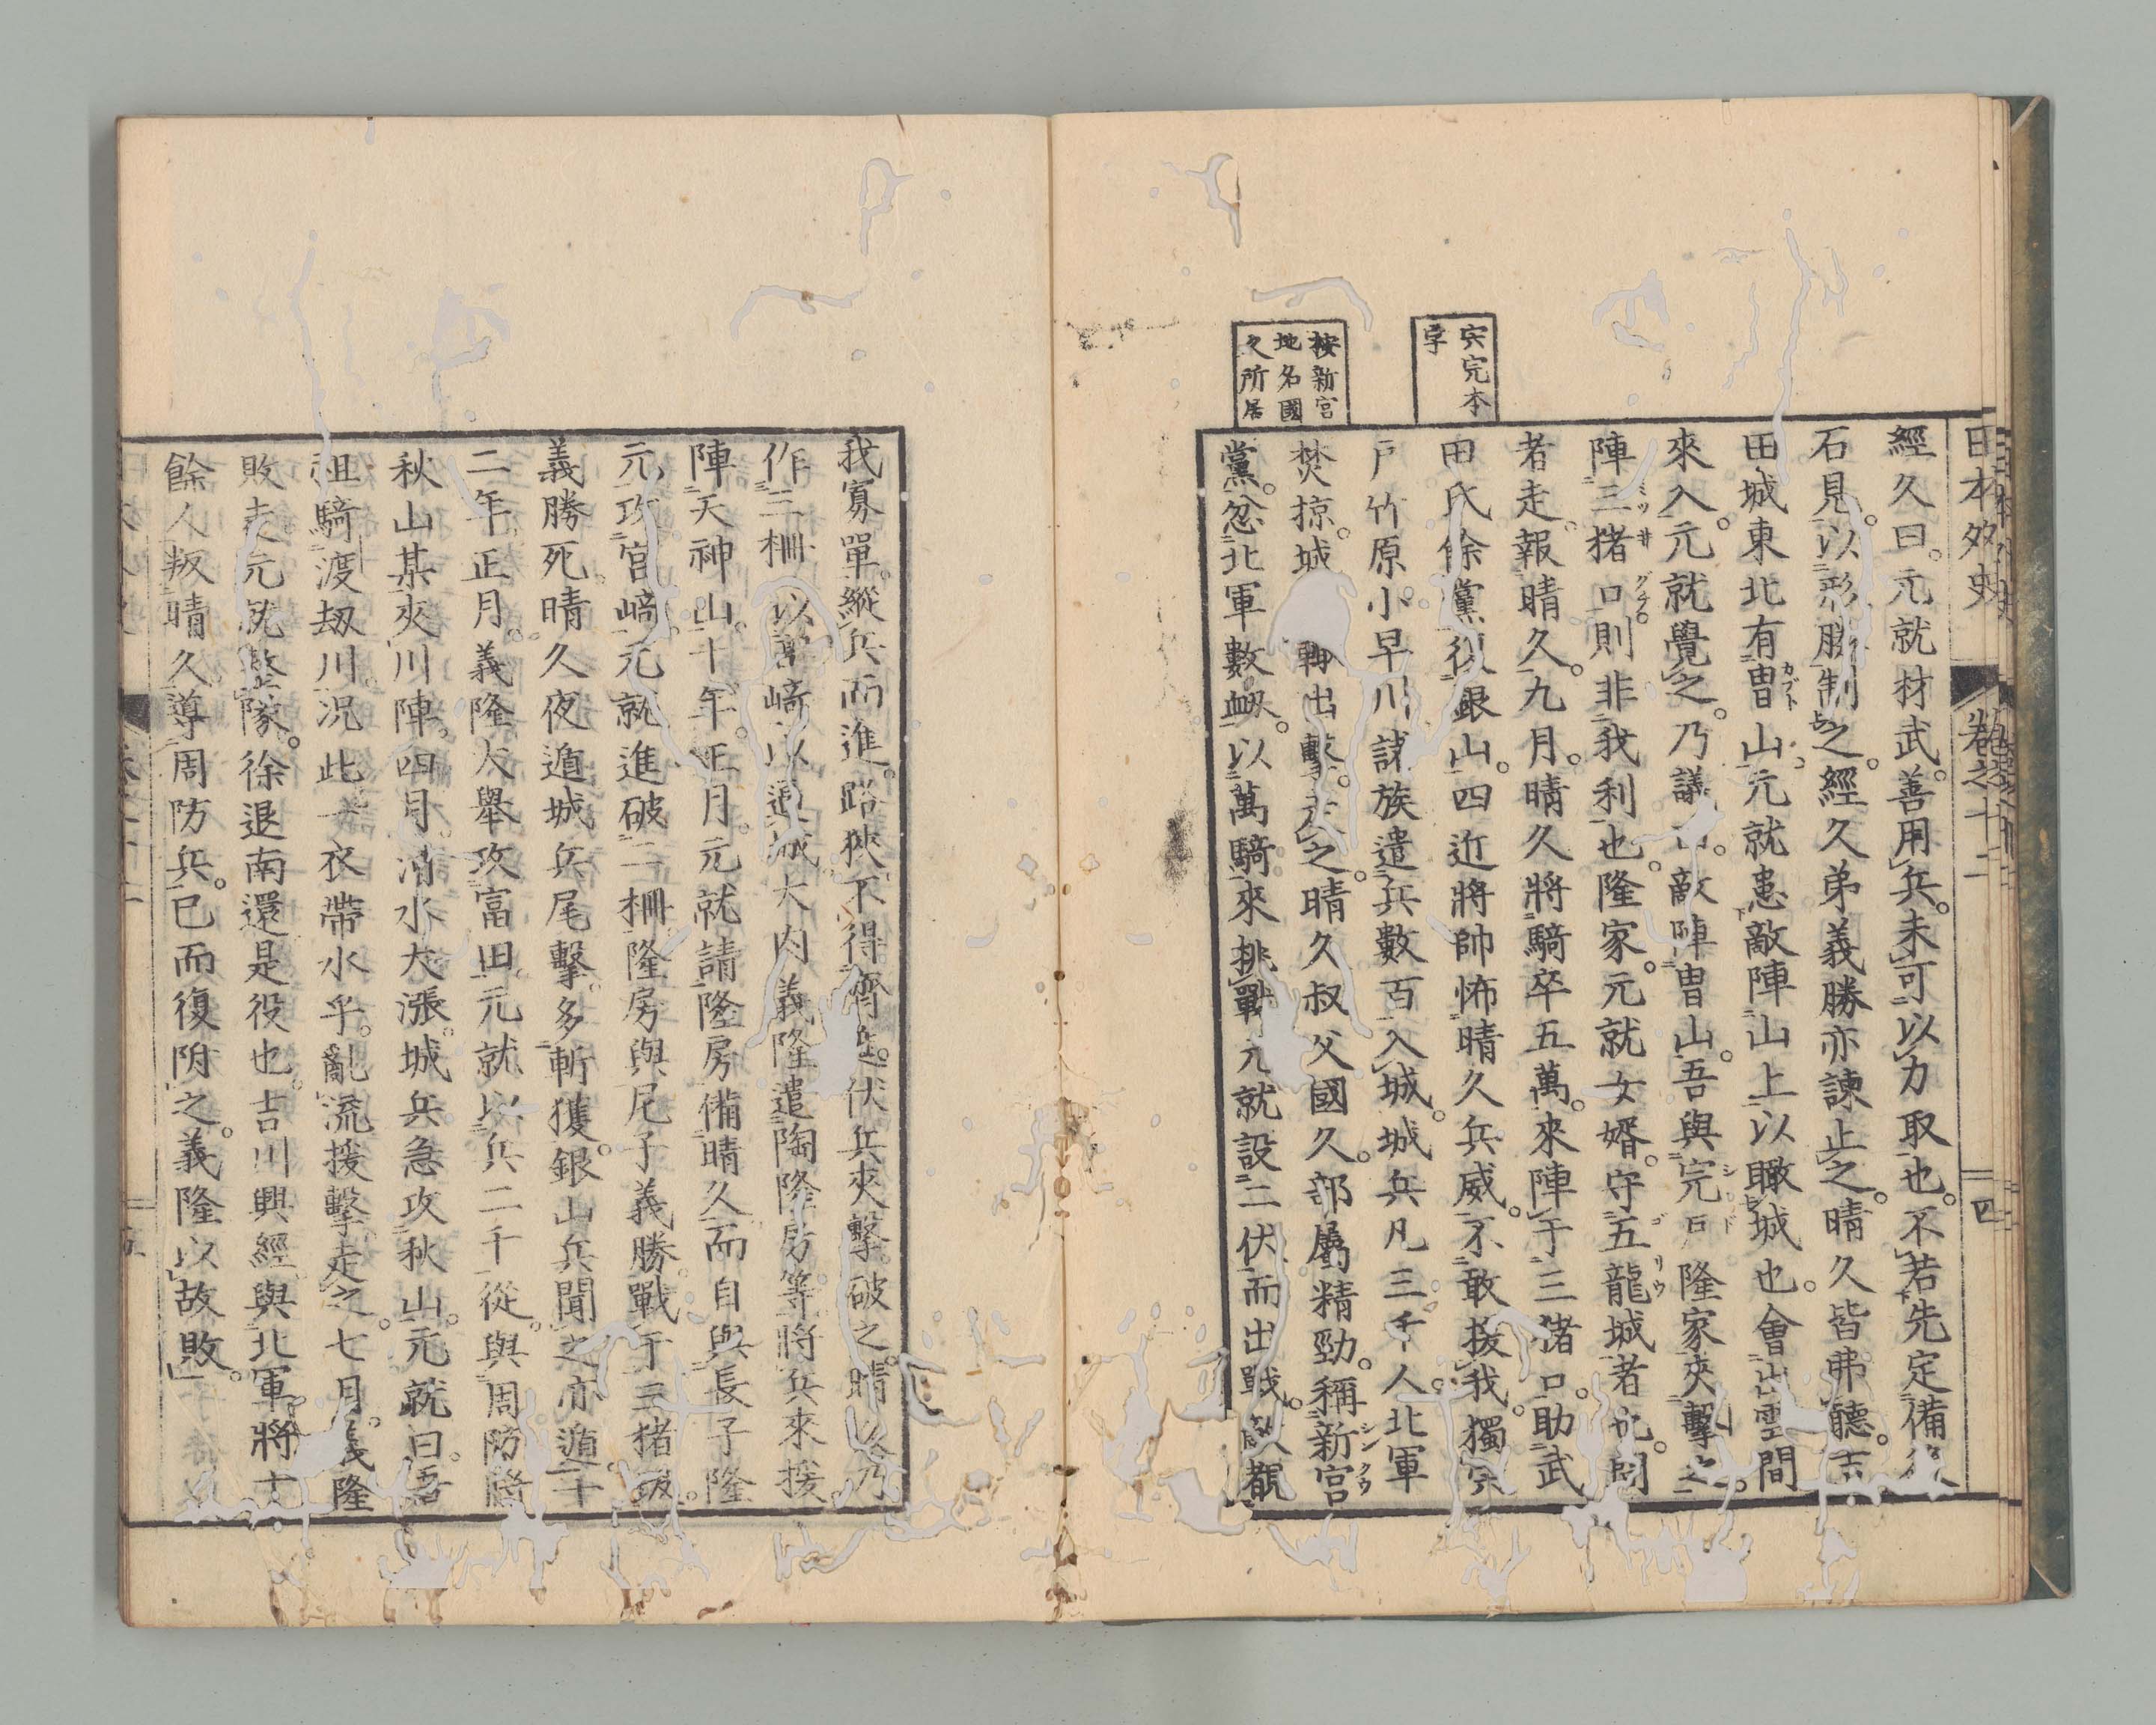 日本外史 卷之十二 四
宍完本
字
按新宮
地名國
久所居
經久曰。元就材武。善用兵。未可以力取也。不若先定備後
石見。以形勝制之。經久弟義勝亦諫止之。晴久皆弗聽。吉
田城東北有冑山。元就患敵陣山上以瞰城也。會出雲間
來入。元就覺之。乃議曰。敵陣冑山。吾與完戸隆家夾擊之。
陣三猪口。則非我利也。隆家。元就女婿。守五龍城者也。間
者走報晴久。九月。晴久將騎卒五萬。來陣于三猪口。助武
田氏餘黨。復銀山。四近將帥怖晴久兵威。不敢援我。獨宍
戸竹原小早川諸族遣兵數百入城。城兵凡三千人。北軍
焚掠。城 輙出擊。走之。晴久叔父國久。部屬精勁。稱新宮
黨。忽北軍數衂。以萬騎來挑戰。元就設二伏而出戰。敵觀
我寡單。縱兵而進。路狹不得齊進。伏兵夾擊破之。晴久乃
作三柵 以宮﨑以逼城。大内義隆遣陶隆房等將兵來援
陣天神山。十年正月。元就請隆房備晴久。而自與長子隆
元攻宮﨑。元就進破二柵。隆房與尼子義勝戰于三猪 。
義勝死。晴久夜遁。城兵尾擊。多斬獲。銀山兵聞之亦遁。十
二年正月。義隆大舉攻富田。元就以兵二千從。與周防將
秋山某夾川陣。四月。清水大漲。城兵急攻秋山。元就曰。吾
祖騎渡劫川。況此一衣帶水乎。亂流援擊走之。七月。義隆
敗走。元就整隊。徐退南還。是役也。吉川興經與北軍將十
餘人叛晴久。導周防兵。已而復附之。義隆以故敗。